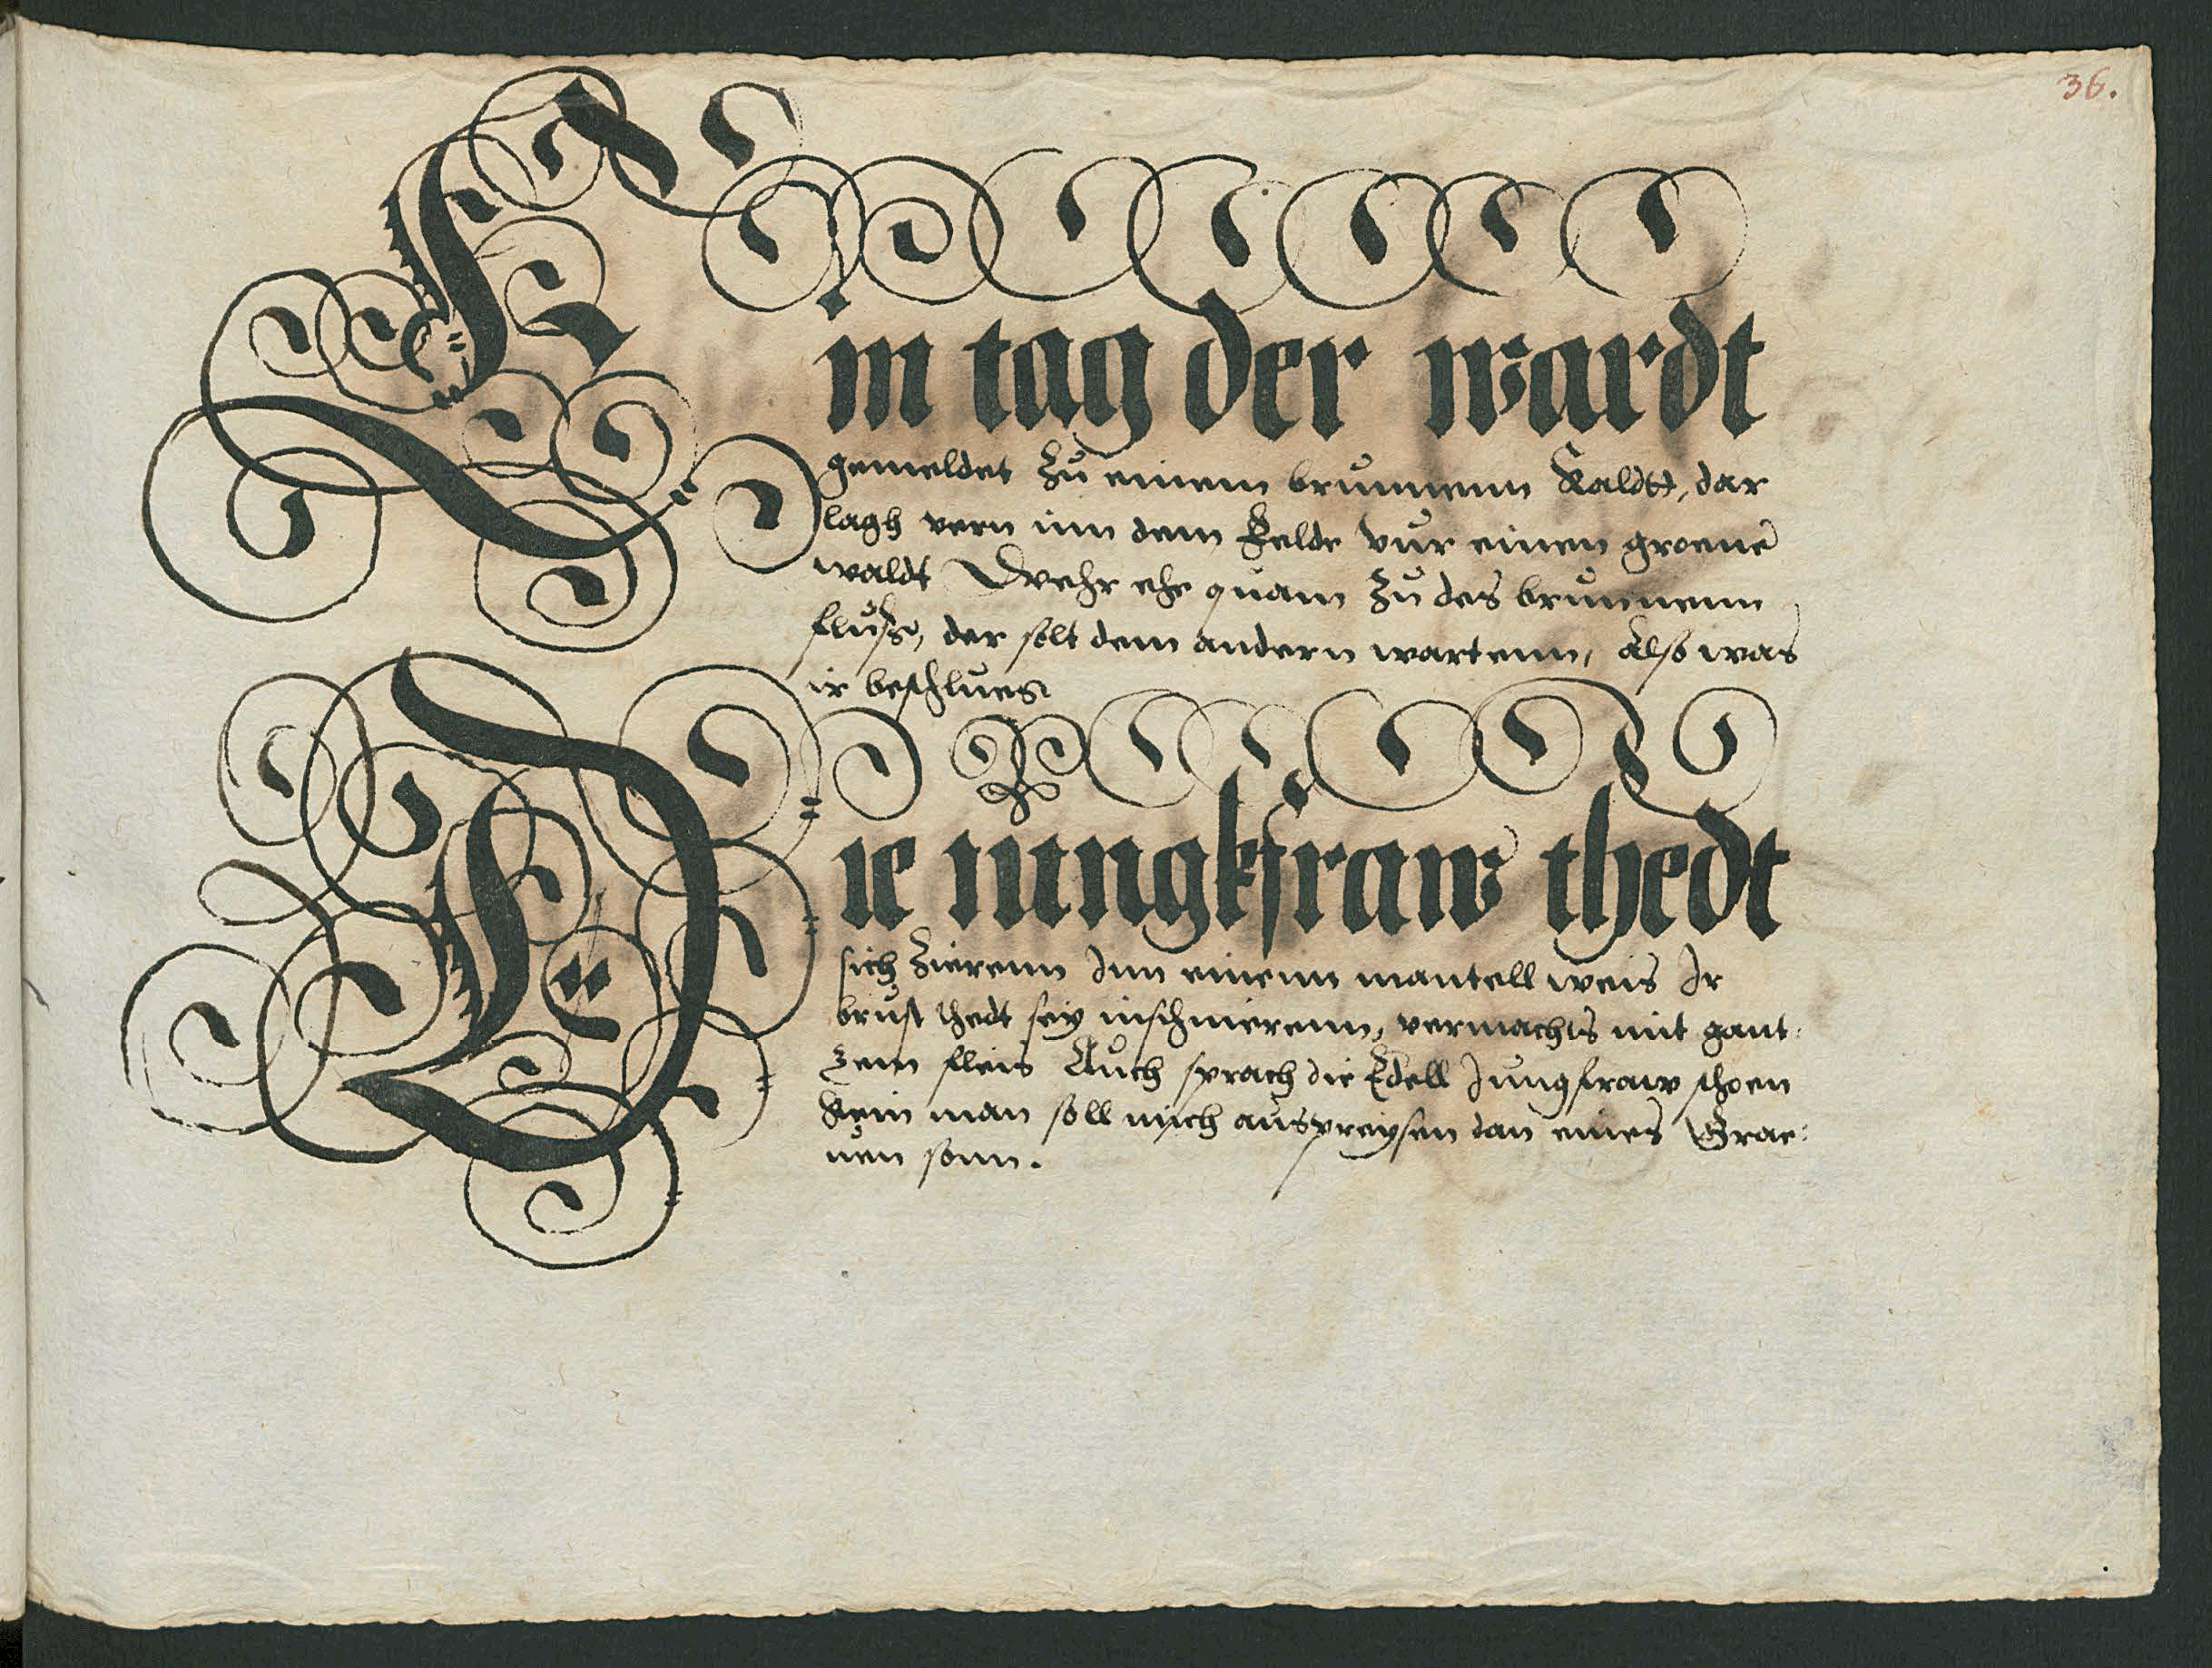 36.
Ein tag der wardt
gemeldet zu einem brunnenn kaldt, dar
lagh vern inn dem Felde vur einen groene
waldt Wehr ehe quam zu des brunnenn
flus, der solt dem andern wartenn, Also was
ir beschlues
Die iungkfraw thedt
sich zierenn Inn einenn mantell weis Ir
brust thedt sey inschnierenn, vermachts mit gant:
zem fleis Auch sprach die Edell Jungfraw schoen
kein man soll mich auspreysen dan eines Grae:
uen sonn.